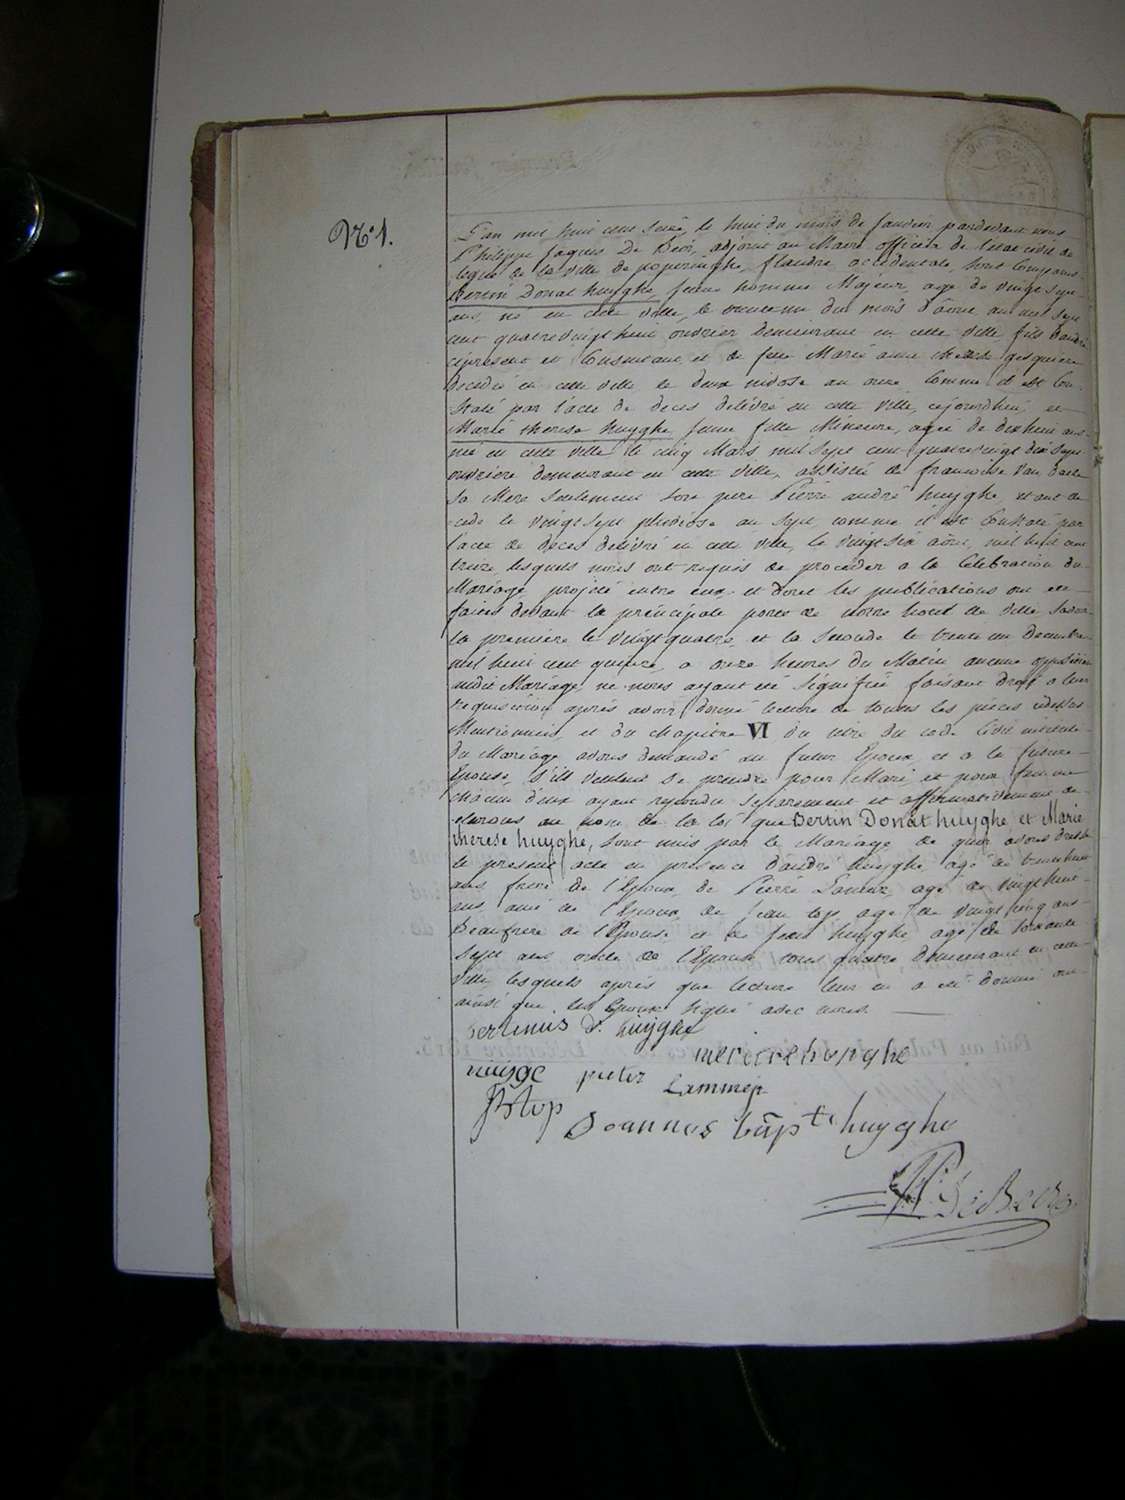 N.° 1.
L'an mil huit cent seize, le huit du mois de Janvier pardevant nous
Philippe Jaques De Beir, adjoint au Maire officier de l'etat civil de
la ville de poperinghe, flandre occidentale, sont comparus
Bertin Donat huyghe, jeune homme Majeur, agé de vingt sept
ans, né en cette ville, le trente un du mois d'aout an mil sept
cent quatrevingt huit ouvrier demeurant en cette ville fils d'andré
cipresent et consentant et de feue Marie anne gesquiere
decedée en cette ville le deux nivose an onze comme il est con-
staté par l'acte de deces delivré en cette ville, cejourdhui, et
Marie therese huyghe jeune fille Mineure, agée de dixhuit ans
née en cette ville le cinq Mars mil sept cent quatrevingt dix sept
ouvriere demeurant en cette ville, assistée de francoise Van
sa Mere seulement son pere Pierre andré huyghe, etant de-
cedé le vingt sept pluviose an sept, comme il est constaté par
l'acte de deces delivré en cette ville, le vingt six aout, mil huit cent
treize, lesquels nous ont requis de proceder a la Celebration du
Mariage projeté entre eux et dont les publications ont eté
faites devant la principale porte de notre hotel de ville savoir
la premiere le vingt quatre, et la seconde le trente un Decembre
mil huit cent quinze, a onze heures du Matin aucune opposition
audit Mariage, ne nous ayant eté signifiée faisant droit a leur
requisition après avoir donné lecture de toutes les pieces
Mentionnées et du chapitre VI du titre du code civil intitulé
du Mariage avons demandé au futur Epoux et a la future
Epouse, s'ils veulent se prendre pour Mari, et pour femme
chacun d'eux ayant repondu separement et affirmativement de-
clarons au nom de la loi que Bertin Donat huyghe et Marie
therese huyghe, sont unis par le Mariage de quoi avons dressé
le present acte en presence d'andré huyghe agé de trente huit
ans frere de l'Epoux de Pierre agé de vingt huit
ans ami de l'Epoux de Jean top agé de vingt cinq ans
Beaufrere de l'Epouse et de Jean huyghe agé de soixante
sept ans oncle de l'Epouse tous quatre demeurant en cette
ville lesquels après que lecture leur en a eté donnée ont
ainsi que les Epoux signé avec nous.
Bertinus d. huyghe
huyge pieter Lammeij
JB top
Joannes bapte huyghe
De Beir